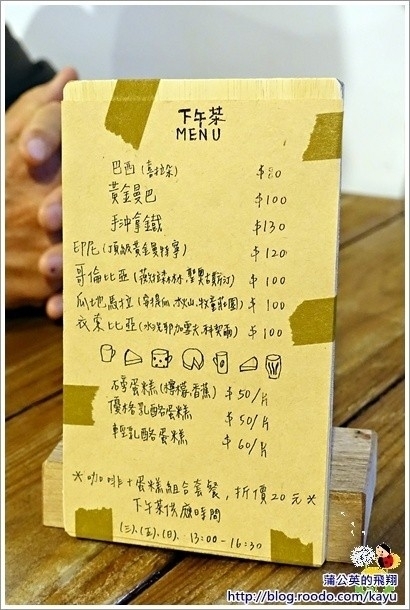 下午茶
MENU
巴西(喜拉朵) $80
黃金曼巴 $100
手沖拿鐵 $130
印尼(頂級黃金曼特寧) $120
哥倫比亞 $100
瓜地馬拉 $100
衣索比亞 $100
磅蛋糕(檸檬.香蕉) $50/片
優格乳酪蛋糕 $50/片
輕乳酪蛋糕 $60/片
*咖啡+蛋糕組合套餐,折價20元*
下午茶供應時間
(三).(五).(日). 13:00-16:30
蒲公英的飛翔
http://blog.roodo.com/kayu